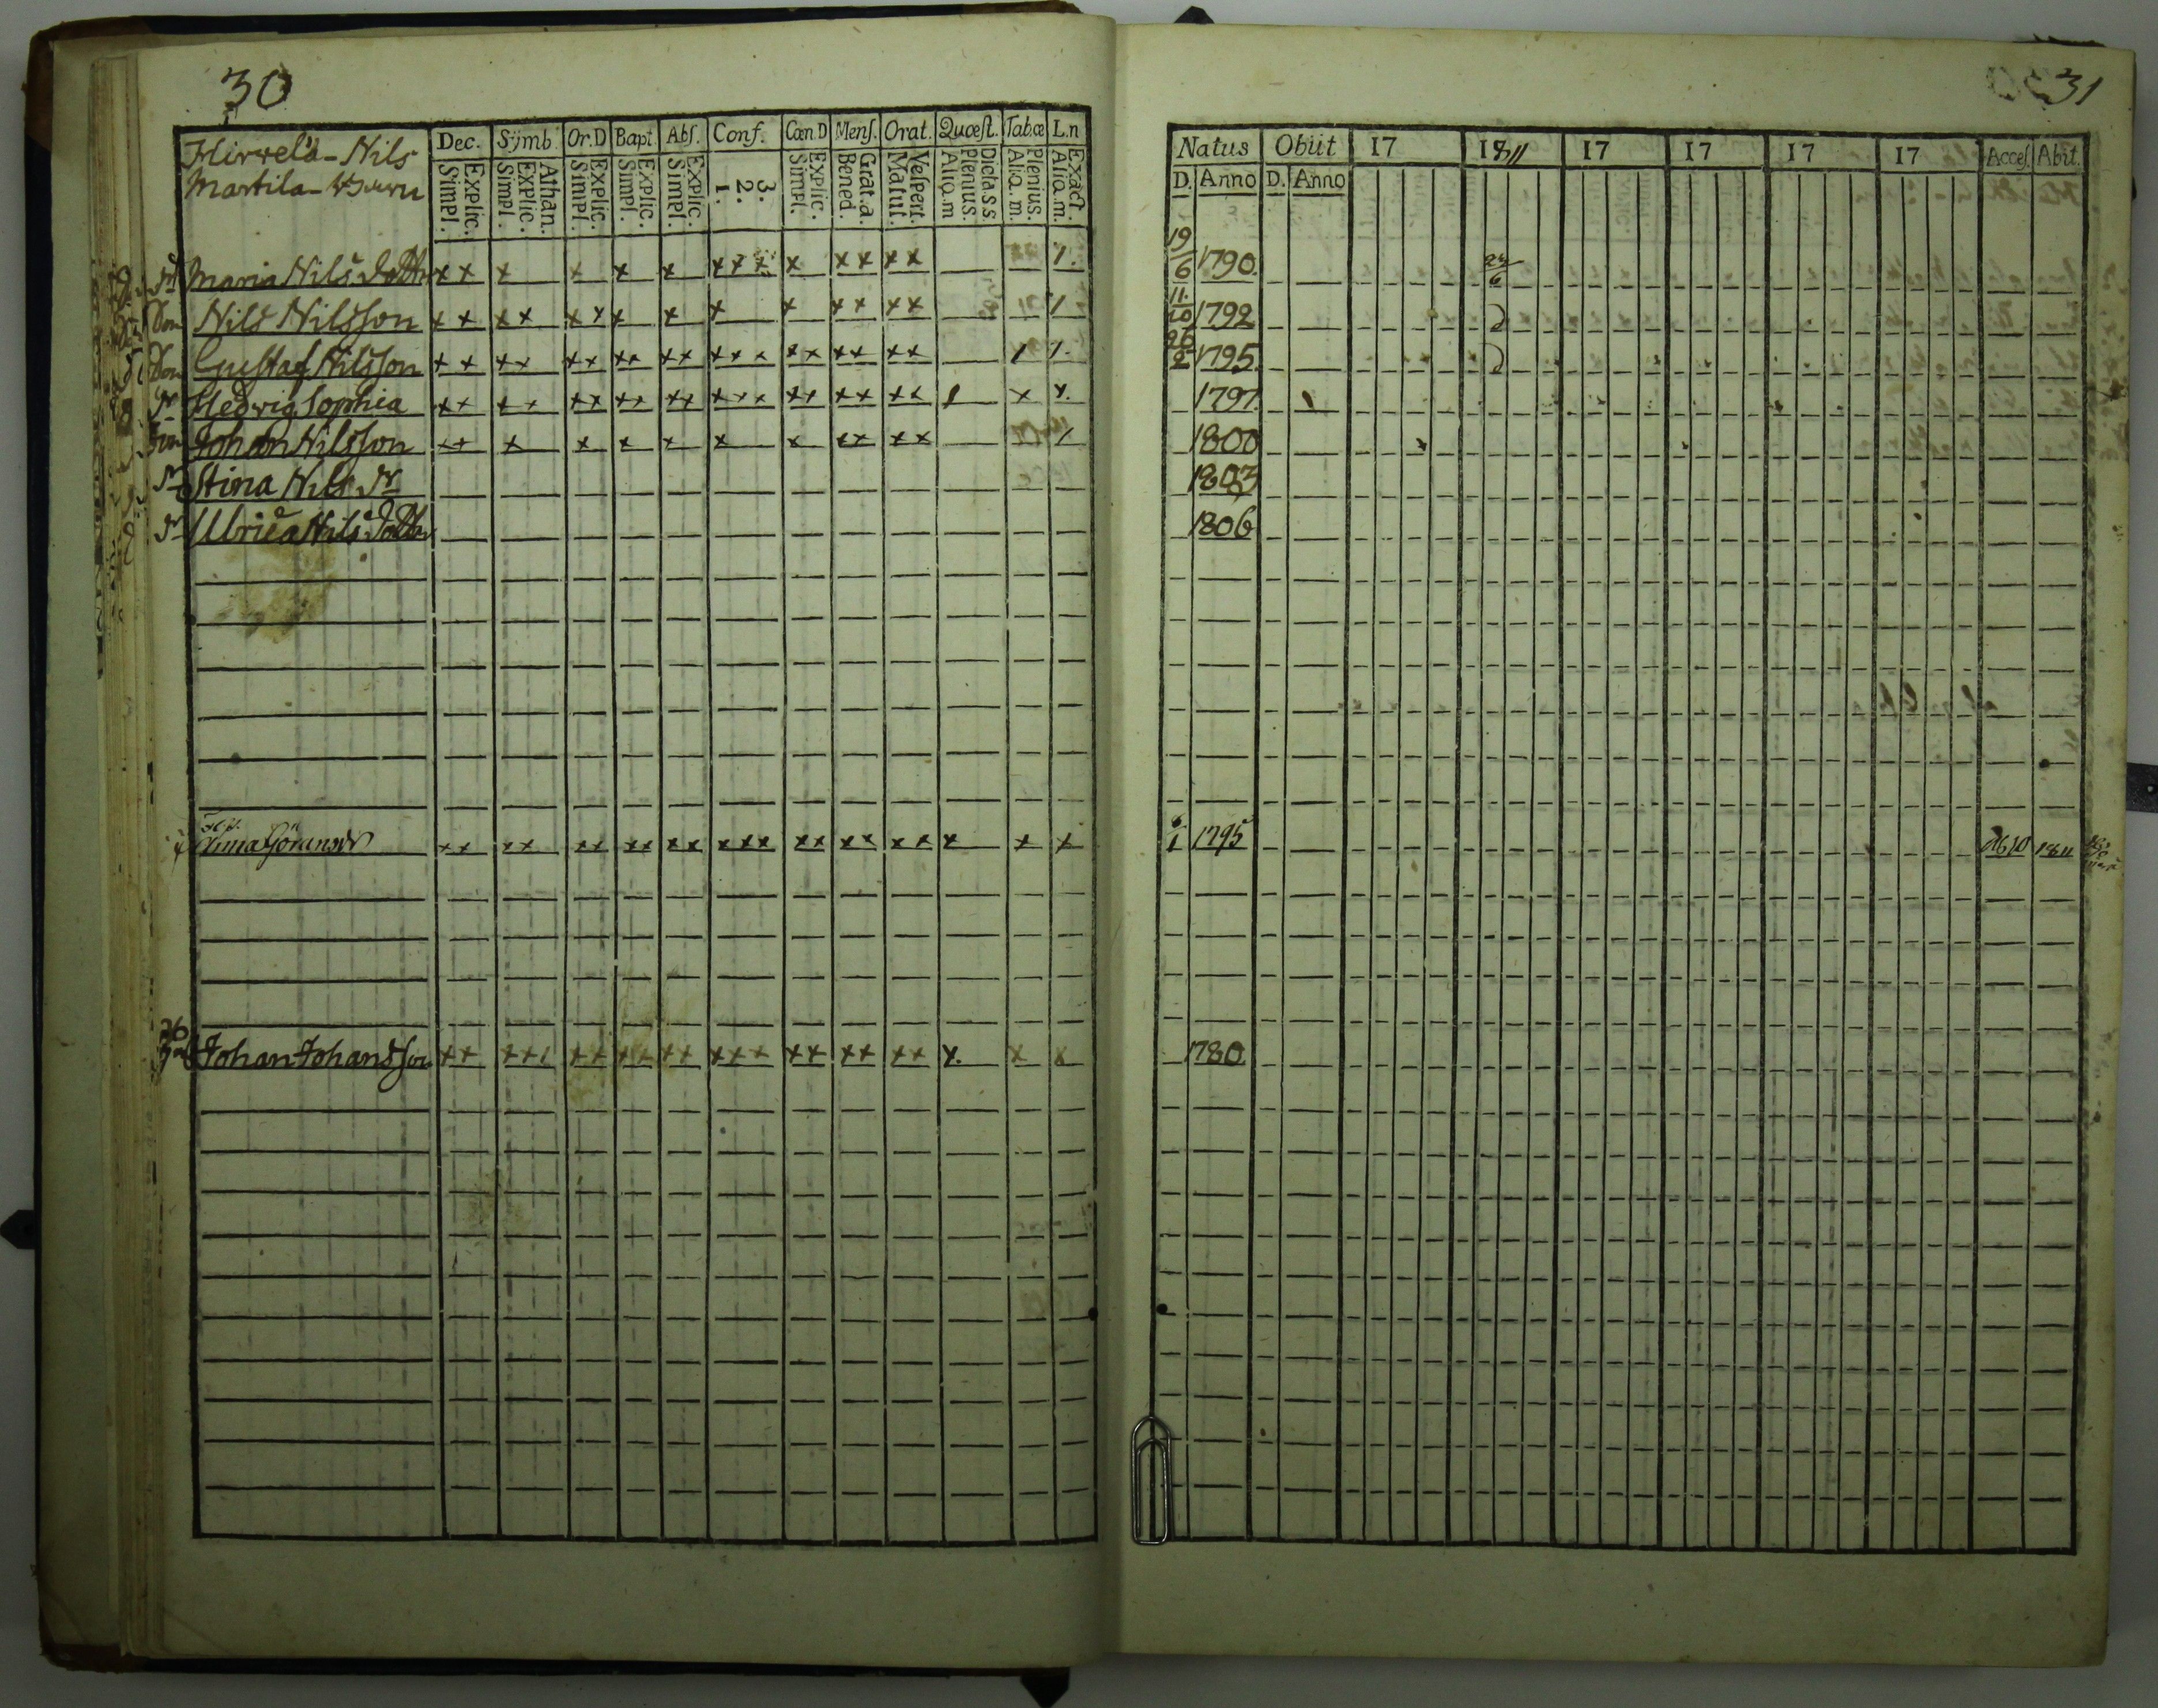 30
Hirvelä - Nils
Martila -
Dec. Symb. Or.D Bapt. Abs. Conf. Cœn.D Mens. Orat. Quœst. Tab.œ L.n
Explic. Simpl. Athan. Explic. Simpl. Explic. Simpl. Explic. Simpl. Explic. Simpl. 3. 2. 1. Explic. Simpl. Grat.a. Bened. Vespert. Matut. Dicta s s Plenius. Aliq.m Plenius. Aliq.m. Exact. Aliq.m.
Maria Nils Dotter x x x x x x x x x x x x x x
Son Nils Nilsson x x x x x x x x x x x x x x
Son Gustaf Nilsson x x x x x x x x x x x x x x x x x x x
Hedvig Sophia x x x x x x x x x x x x x x x x x x x x x
Son Johan Nilsson x x x x x x x x x x x x
Stina Nils dr
Ulrica Nils Dotter
Anna Göransdr x x x x x x x x x x x x x x x x x x x x x x
Johan Johansson x x x x x x x x x x x x x x x x x x x x x x
31
Natus Obiit 17 1811 17 17 17 17 Acces. Abit.
D. Anno D. Anno
19/6 1790
11/10 1792
26/2 1795
1797
1800
1803
1806
1795 1810 1811
1780